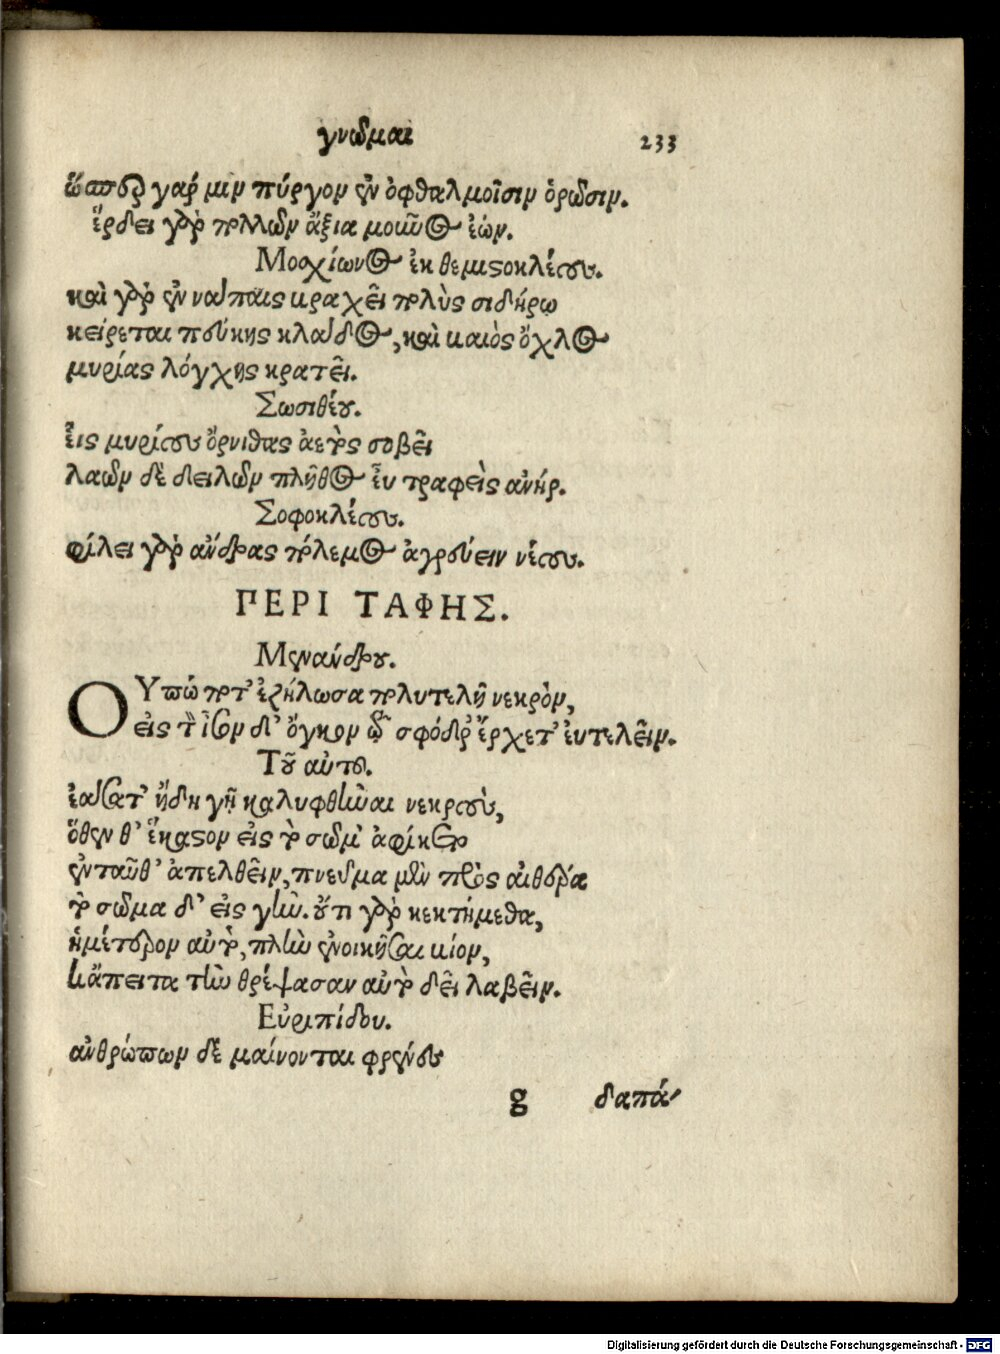 γνῶμαι 233
ὥσπερ γάρ μιν πύργον ἐν ὀφθαλμοῖσιν ὁρῶσιν.
ἔρδει γὰρ πολλῶν ἄξια μοῦνος ἐών.
Μοσχίωνος ἐκ θεμιστοκλέους.
καὶ γὰρ ἐν νάπαις βραχεῖ πολὺς σιδήρῳ
κείρεται πεύκης κλάδος, καὶ βαιὸς ὄχλος
μυρίας λόγχης κρατεῖ.
Σωσιθέου.
εἷς μυρίους ὄρνιθας ἀετὸς σοβεῖ
λαῶν δὲ δειλῶν πλῆθος εὖ τραφεὶς ἀνήρ.
Σοφοκλέους.
φιλεῖ γὰρ ἄνδρας πόλεμος ἀγρεύειν νέους.
ΠΕΡΙ ΤΑΦΗΣ.
Μενάνδρου.
ΟΥπώποτ' ἐζήλωσα πολυτελῆ νεκρὸν,
εἰς τὸν ἴσον δ' ὄγκον τῷ σφόδρ' ἔρχετ' εὐτελεῖν.
Τοῦ αὐτοῦ.
ἐάσατ' ἤδη γῇ καλυφθῆναι νεκροὺς,
ὅθεν θ' ἕκαστον εἰς τὸ σῶμ' ἀφίκετο
ἐνταῦθ' ἀπελθεῖν, πνεῦμα μὲν πρὸς αἰθέρα
τὸ σῶμα δ' εἰς γῆν. οὔτι γὰρ κεκτήμεθα,
ἡμέτερον αὐτὸ, πλὴν ἐνοικῆσαι βίον,
κἄπειτα τὴν θρέψασαν αὐτὸ δεῖ λαβεῖν.
Εὐριπίδου.
ἀνθρώπων δὲ μαίνονται φρένες
g δαπά-
Digitalisierung gefördert durch die Deutsche Forschungsgemeinschaft - DFG